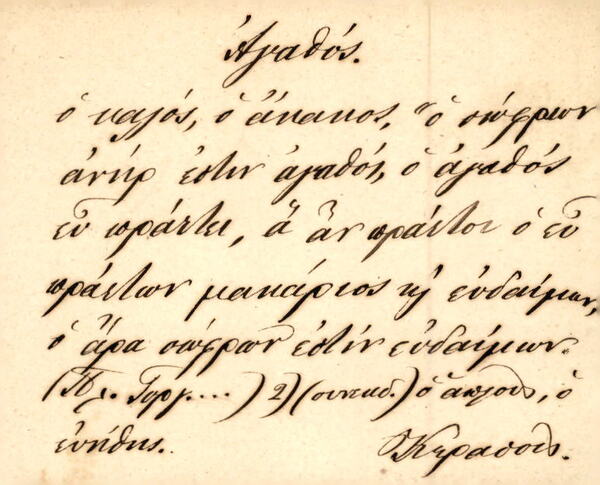 Ἀγαθός.
ὁ καλός, ὁ ἄκακος, ὁ σώφρων
ἀνήρ ἐστιν ἀγαθός, ὁ ἀγαθός
εὖ πράττει, ἃ ἂν πράττοι ὁ εὖ
πράττων μακάριος κỳ εὐδαίμων,
ὁ ἄρα σώφρων ἐστίν εὐδαίμων.
(Πλ. Γοργ....) 2) (συνεκδ.) ὁ ἁπλοῦς, ὁ
εὐήθης.